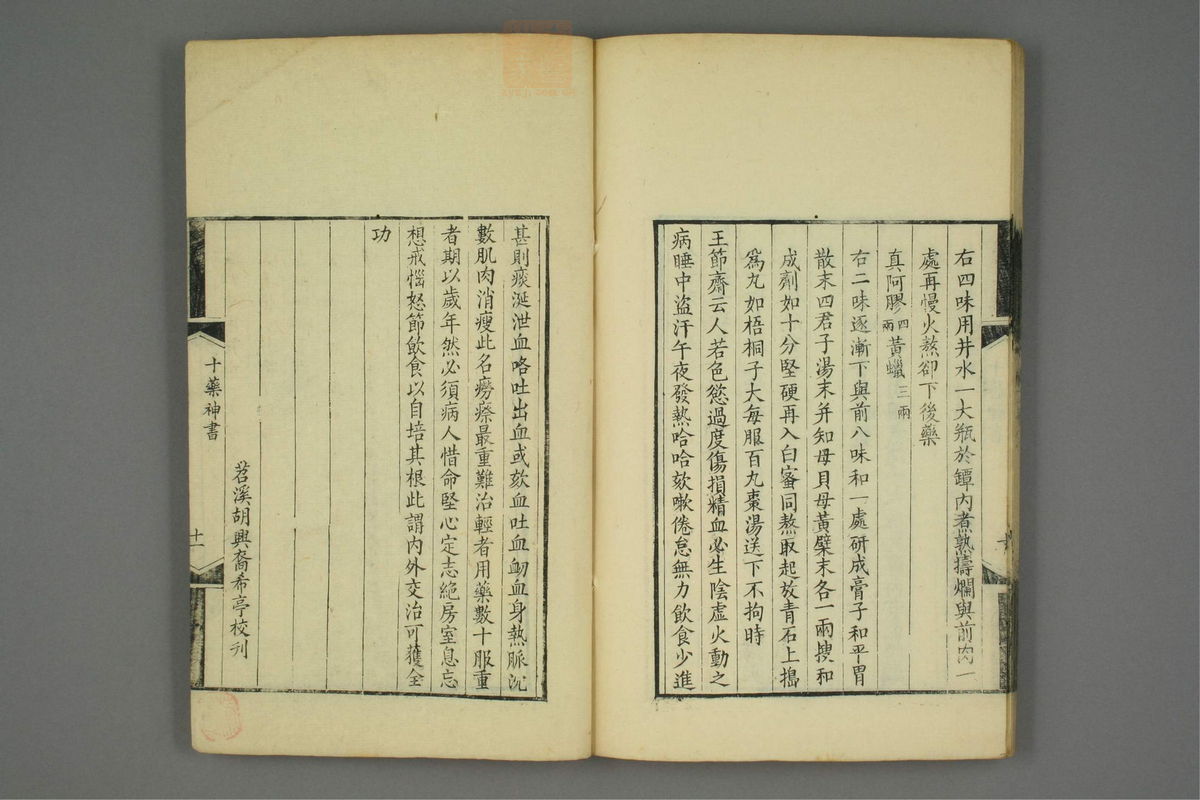 右四味用井水一大瓶於罈内煮熟擣爛與前肉一
處再慢火熬卻下後藥
真阿膠四兩黃蠟三兩
右二味逐漸下與前八味和一處研成膏子和平胃
散末四君子湯末并知母貝母黃蘗末各一兩搜和
成劑如十分堅硬再入白蜜同熬取起放青石上搗
爲丸如梧桐子大每服百丸棗湯送下不拘時
王節齋云人若色慾過度傷損精血必生陰虛火動之
病睡中盜汗午夜發熱哈哈欬嗽倦怠無力飲食少進
甚則痰涎泄血咯吐出血或欬血吐血衂血身熱脈沉
數肌肉消瘦此名癆瘵最重難治輕者用藥數十服重
者期以歲年然必須病人惜命堅心定志絶房室息忘
想戒惱怒節飲食以自培其根此謂内外交治可獲全
功
苕溪胡興裔希亭校刋
十藥神書
十一